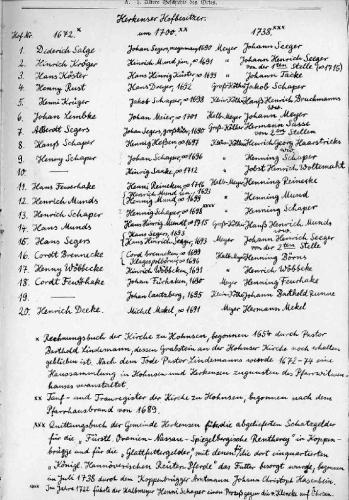 A. 1. Ältere Geschichte des Ortes.
Herkenser Hofbesitzer.
Hof Nr. 1672.x um 1700.xx 1738.xxx
1. Diderich Salge Johan Seger, 1690 Meyer Johann Seeger
2. Hinrich Kröger Hinrich Mund jun., ∞ 1691 " Johann Henrich Seeger
von der 1sten Stelle (∞ 1715)
3. Hans Köster Hans Henrig Küster ∞ 1699 " Johann Tacke
4. Henny Rust Hans Dreyer, 1692 Groß Köther Jakob Schaper
5. Henni Krüger Jakob Schaper, ∞ 1698 Klein Köther Hanß Henrich Bruchmanns
wwe.
6. Johan Lembke Johan Meier, ∞ 1701 Halb Meyer Johann Meyer
7. Alberdt Segers Johan Seger, 1690 Groß Köther Hermann Sasse
von 2ten Stellen
8. Hanß Schaper Hennig Hoßen ∞ 1697 Klein Köther Henrich Georg Haarstricks
wwe.
9. Henny Schaper Johan Schaper ∞ 1696 " Henning Schaper
10. — Hinrig Sacke, 1712 " Jobst Hinrich Woltemakt
11. Hans Feuerhake Henni Reineken ∞ 1716 Halb Meyer Henning Reineke
12. Henrich Munds Hennig Mund ∞ 1699 " Henning Mund
13. Henrich Schaper Hennig Schaper ∞ 1698 " Henning Schaper
14. Hans Munds Hans Hinrig Mundt, ∞ 1715 Groß Köther Hanß Henrich Munds
wwe.
15. Hans Segers Hans Seger, 1693
Hans Hinrich Seger, 1693 Meyer Johann Henrich Seeger
von der 2ten Stelle
16. Cordt Bennecke Cord brenneken, ∞ 1699
∞ 1696 Halb Meyer Henning Börns
17. Henny Wöbbecke Hinrich Wöbbeken, ∞ 1691 " Henrich Wöbbecke
18. Cordt Feuerhake Johan Fürhaken, 1690 Meyer Henning Feuerhake
19. — Johan Lautzberg, 1695 Klein Köther Johann Barthold Runne
20. Henrich Decke. Michel Mekel, ∞ 1691 Meyer Hermann Mekel
x Rechnungsbuch der Kirche zu Hohnsen, begonnen 1654 durch Pastor
Berthold Lindemann, dessen Grabstein an der Hohnser Kirche noch erhalten
geblieben ist. Nach dem Tode Pastor Lindemanns wurde 1672-74 eine
Haussammlung in Hohnsen und Herkensen zugunsten des Pfarrwitwen-
hauses veranstaltet.
xx Tauf- und Trauregister der Kirche zu Hohnsen, begonnen nach dem
Pfarrhausbrand von 1689.
xxx Quittungsbuch der Gemeinde Herkensen für die abgelieferten Schatzgelder
für die „Fürstl. Oranien-Nassau-Spiegelbergische Rentherey“ in Koppen-
brügge und für die „Glattfuttergelder“ mit denen für dort einquartierten
„Königl. Hannöverschen Reiter Pferde“ das Futter besorgt wurde, begonnen
im July 1738 durch den Koppenbrügger Amtmann Johann Christoph Hasenbein.
xxxx Im Jahre 1722 führte der Halbmeyer Henni Schaper einen Prozeß gegen die